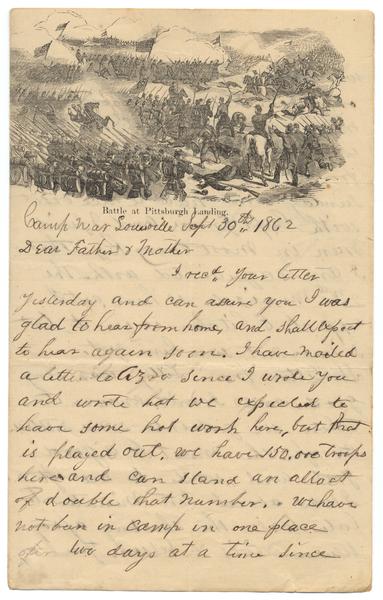 Battle at Pittsburgh Landing.
Camp near Louisville Sept 30th 1862
Dear Father & Mother
I recd Your letter
yesterday and can assure you I was
glad to hear from home, and shall expect
to hear again soon. I have mailed
a letter to since I wrote You
and wrote hot we expected to
have some hot work here, but that
is played out. we have 150,000 Troops
here and can stand an
of double that number. we have
not bin in camp in one place
over two days at a time since